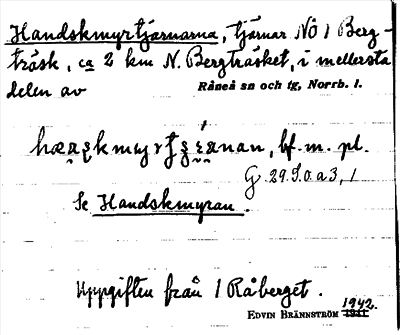 Handskmyrtjärnarna, tjärnar NÖ 1 Berg-
träsk, ca 2 km N. Bergträsket, i mellersta
delen av Råneå sn och tg, Norrb. l.
bf. m. pl.
G 29. S. o. a 3, 1
Se Handskmyran.
Uppgiften från 1 Råberget.
1942.
EDVIN BRÄNNSTRÖM 1941